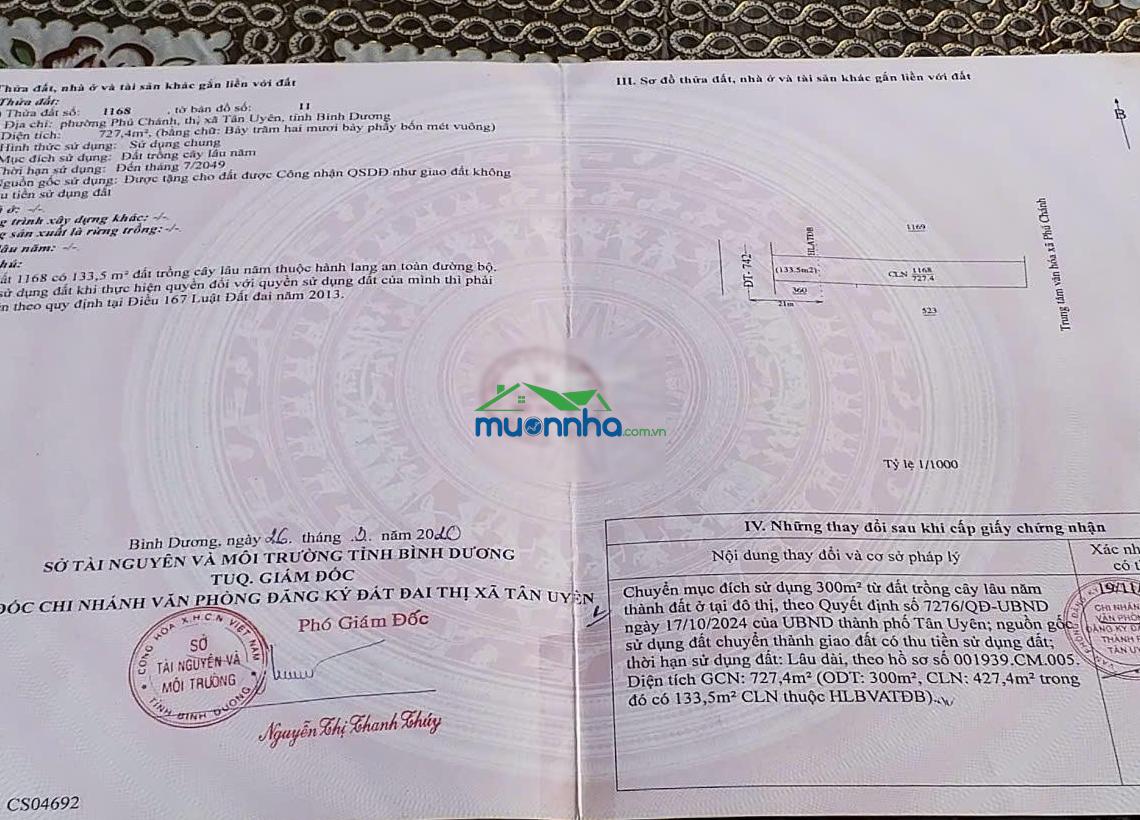 Thửa đất, nhà ở và tài sản khác gắn liền với đất
Thửa đất:
Thửa đất số: 1168 , tờ bản đồ số: 11
Địa chỉ: phường Phú Chánh, thị xã Tân Uyên, tỉnh Bình Dương
Diện tích: 727,4m², (bằng chữ: Bảy trăm hai mươi bảy phẩy bốn mét vuông)
Hình thức sử dụng: Sử dụng chung
Mục đích sử dụng: Đất trồng cây lâu năm
Thời hạn sử dụng: Đến tháng 7/2049
Nguồn gốc sử dụng: Được tặng cho đất được Công nhận QSDĐ như giao đất không
u tiền sử dụng đất
ở: -/-.
g trình xây dựng khác: -/-.
g sản xuất là rừng trồng: -/-.
lâu năm: -/-.
hú:
ất 1168 có 133,5 m² đất trồng cây lâu năm thuộc hành lang an toàn đường bộ.
sử dụng đất khi thực hiện quyền đối với quyền sử dụng đất của mình thì phải
n theo quy định tại Điều 167 Luật Đất đai năm 2013.
Bình Dương, ngày 26. tháng .2. năm 2020
SỞ TÀI NGUYÊN VÀ MÔI TRƯỜNG TỈNH BÌNH DƯƠNG
TUQ. GIÁM ĐỐC
ĐỐC CHI NHÁNH VĂN PHÒNG ĐĂNG KÝ ĐẤT ĐAI THỊ XÃ TÂN UYÊN
Phó Giám Đốc
CỘNG HÒA X.H.C.N VIỆT NAM
SỞ
TÀI NGUYÊN VÀ
MÔI TRƯỜNG
TỈNH BÌNH DƯƠNG
Nguyễn Thị Thanh Thúy
CS04692
III. Sơ đồ thửa đất, nhà ở và tài sản khác gắn liền với đất
B
1169
ĐT- 742
HLATĐB
(133.5m2)
360
21m
CLN 1168
727.4
523
Trung tâm văn hóa xã Phú Chánh
Tỷ lệ 1/1000
muonnha.com.vn
IV. Những thay đổi sau khi cấp giấy chứng nhận
Nội dung thay đổi và cơ sở pháp lý
Xác nh
có t
Chuyển mục đích sử dụng 300m² từ đất trồng cây lâu năm
thành đất ở tại đô thị, theo Quyết định số 7276/QĐ-UBND
ngày 17/10/2024 của UBND thành phố Tân Uyên; nguồn gốc
sử dụng đất chuyển thành giao đất có thu tiền sử dụng đất;
thời hạn sử dụng đất: Lâu dài, theo hồ sơ số 001939.CM.005.
Diện tích GCN: 727,4m² (ODT: 300m², CLN: 427,4m² trong
đó có 133,5m² CLN thuộc HLBVATĐB).
19/11
CHI NHÁN
VĂN PHÒ
ĐĂNG KÝ Đ
THÀNH P
TÂN UY